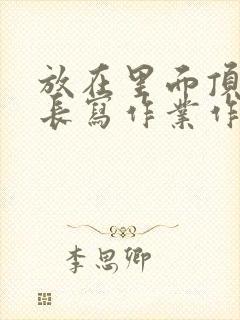 放在里而頂
長寫作業作
李思卿